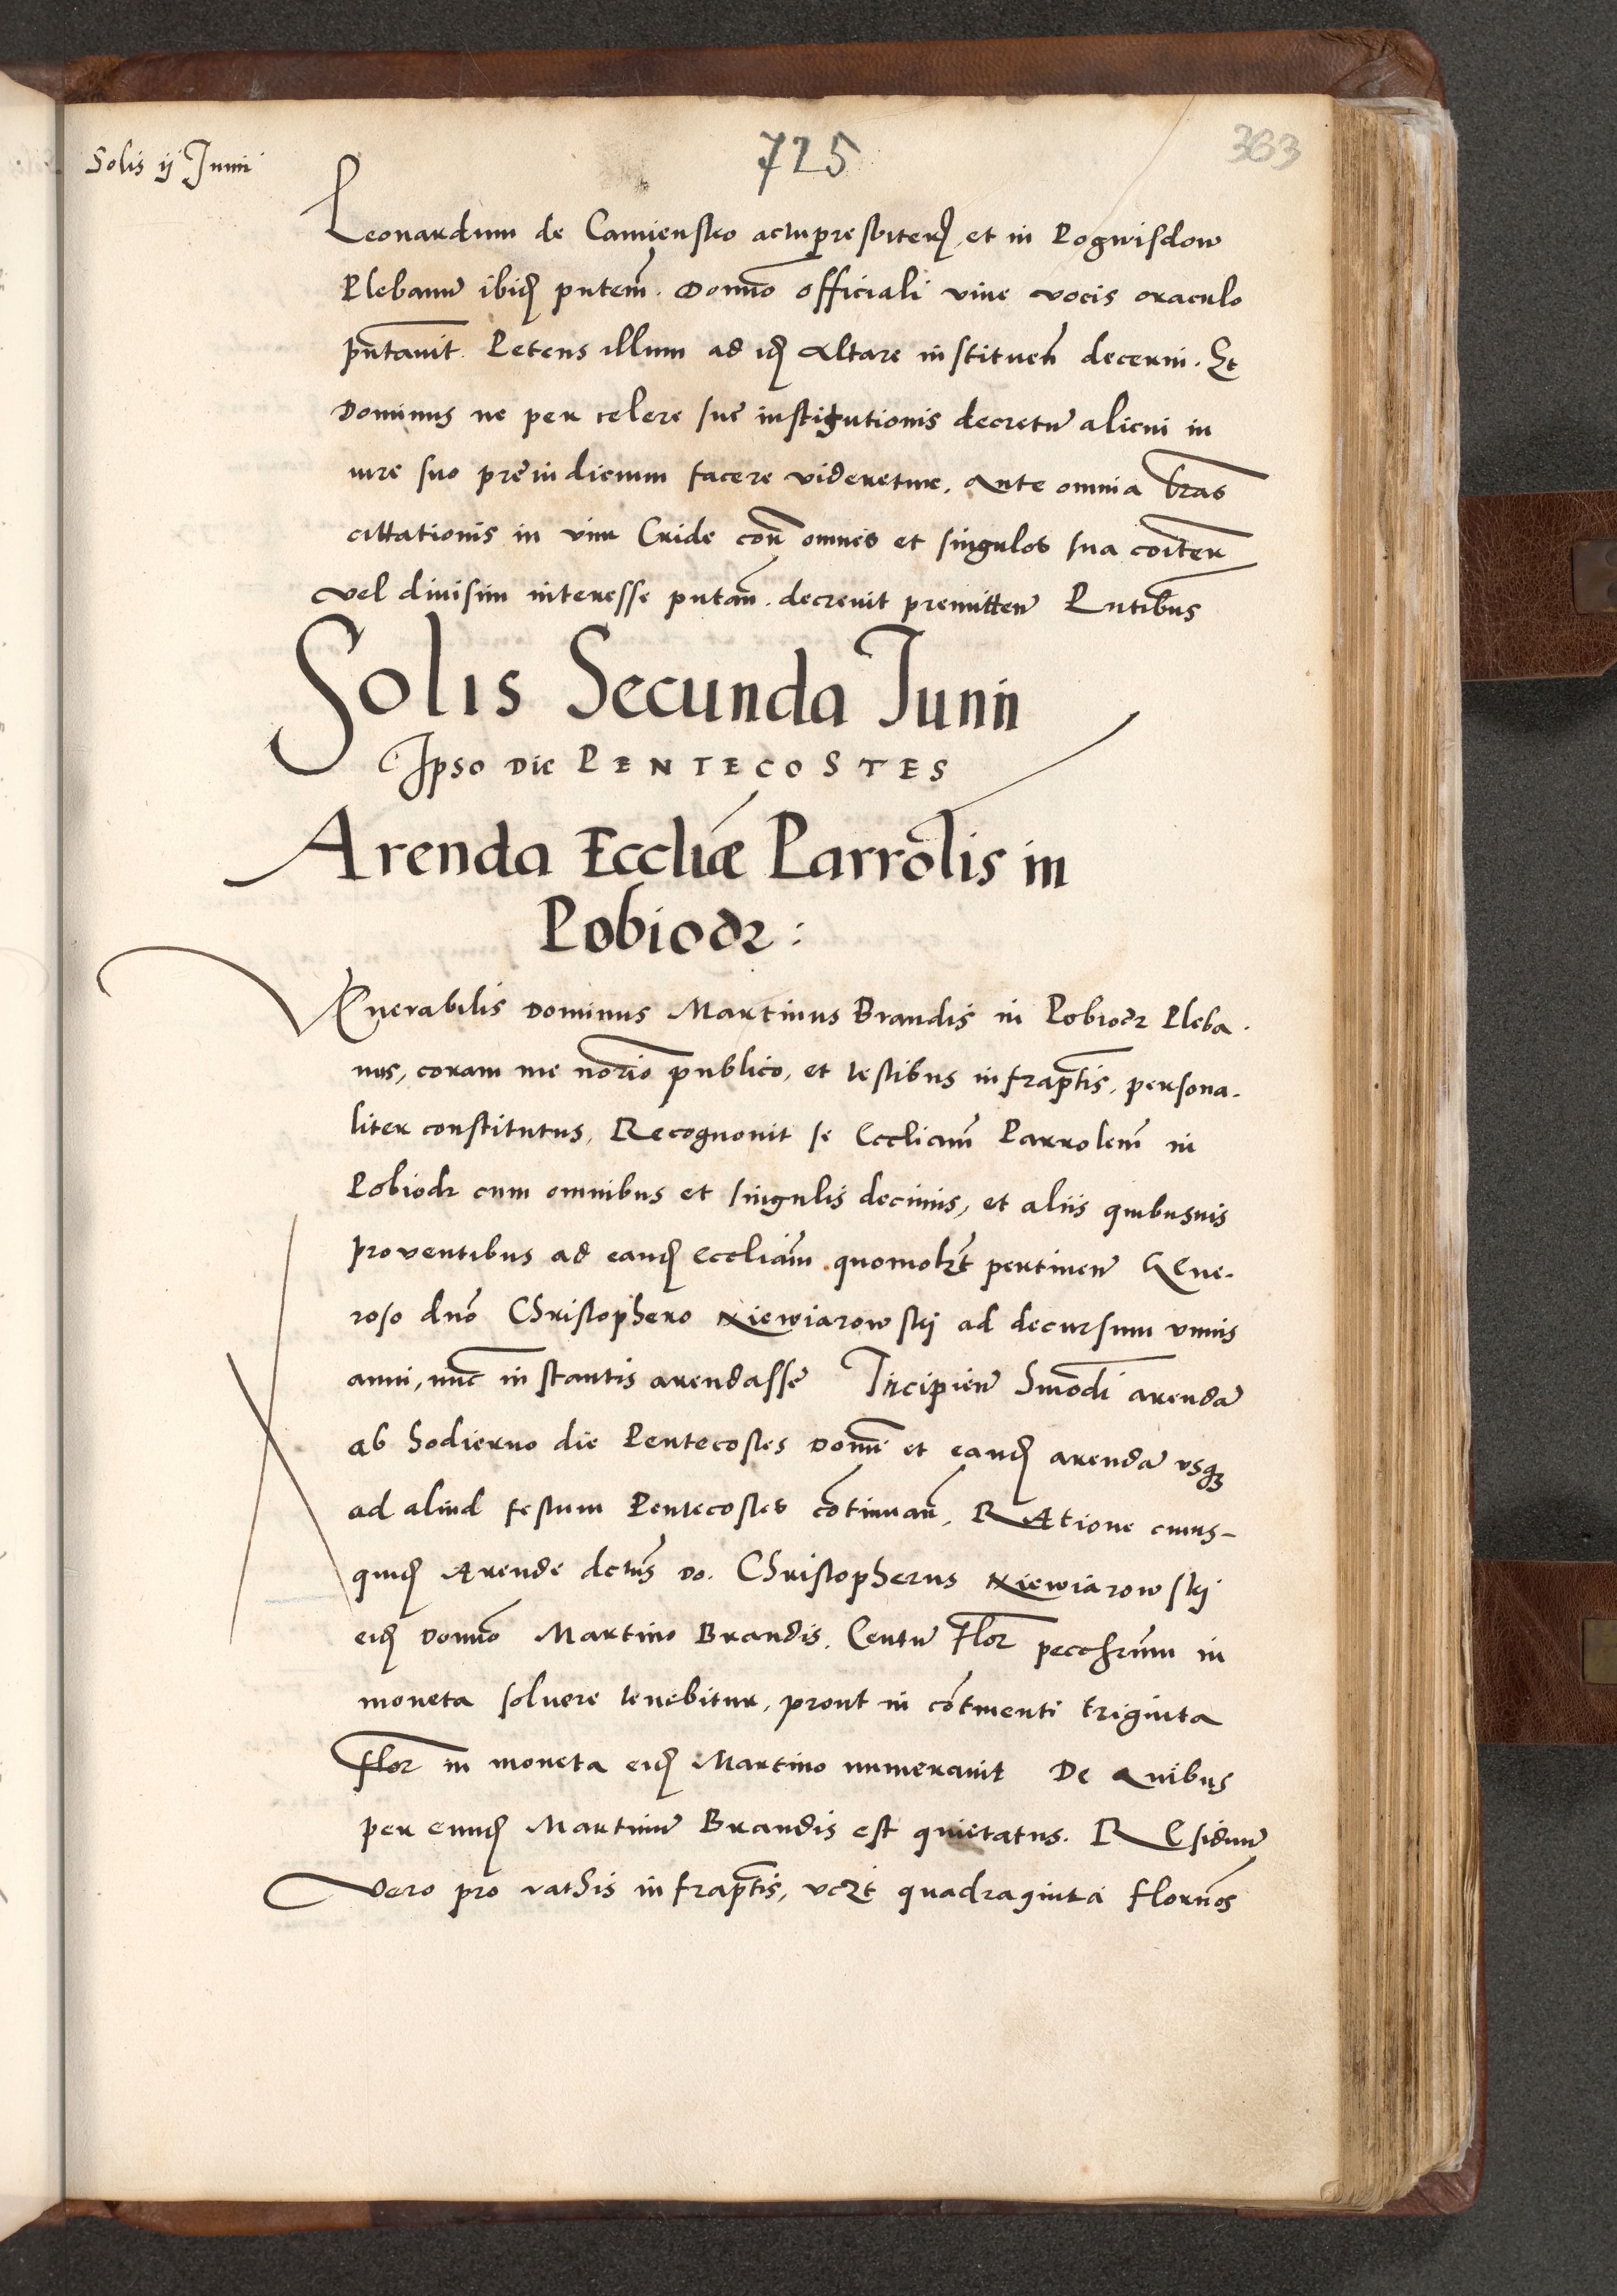 Solis ij Junii
725
363
Leonardum de Camienskо actu presbiterū et in Pogwisdow
Plebanū ibidē pntem. Domino officiali vive vocis oraculo
pntavit. Petens illum ad idē Altare instituen̄ decerni. Et
Dominus ne per celere sue institutionis decretū alicui in
iure suo preiudicium facere videretur. Ante omnia lr̄as
cittationis in vim Cride con̄ omnes et singulos sua coīter
vel divisim interesse putan̄. decrevit premitten̄ Pntibus
Solis Secunda Junii
Ipso die PENTECOSTES
Arenda Eccliæ Parrōlis in
Pobiodr :
Venerabilis Dominus Martinus Brandis in Pobiodr Pleba.
nus, coram me norio publico, et testibus infraptis, persona.
liter constitutus, Recognovit se Eccliam Parrolem in
Pobiodr cum omnibus et singulis decimis, et aliis quibusvis
proventibus ad eandē Eccliam quomolzt pertinen̄ Gene.
roso dno Christophero Niewiarowskij ad decursum unius
anni, nunc instantis arendasse Incipien̄ hmōdi arendā
ab hodierno die Pentecostes Domi et eandē arendā usqз
ad aliud festum Pentecostes cōtinuan̄. RAtione cuius-
quidē Arende dctus Do. Christopherus Niewiarowskij
eidē Domino Martino Brandis. Centū Flor peccħrum in
moneta solvere tenebitur, prout in cōtinenti triginta
flor in moneta eidē Martino numeravit De Quibus
per eundē Martinū Brandis est quietatus. REsiduū
vero pro rathis infraptis, vczt quadraginta florn̄os